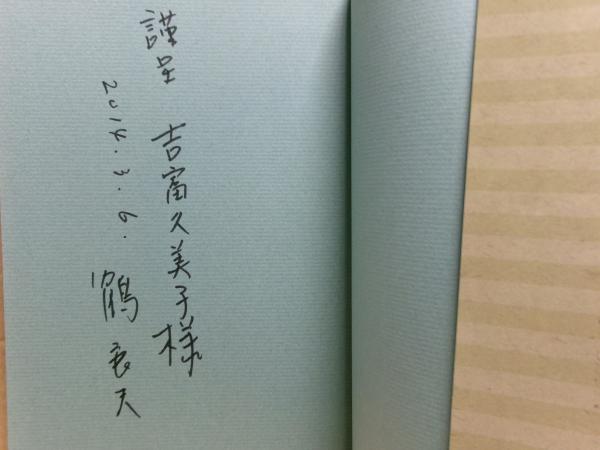 謹呈 吉富久美子様
2014.3.6. 鶴